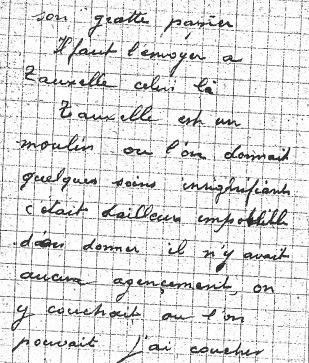 son gratte papier
Il faut l'envoyer a
Zauxelle celui là
Zauxelle est un
moulin ou l'on donnait
quelques soins insignifiants
c'était dailleurs impossible
d'en donner il n'y avait
aucun agencement, on
y couchait ou l'on
pouvait j'ai coucher